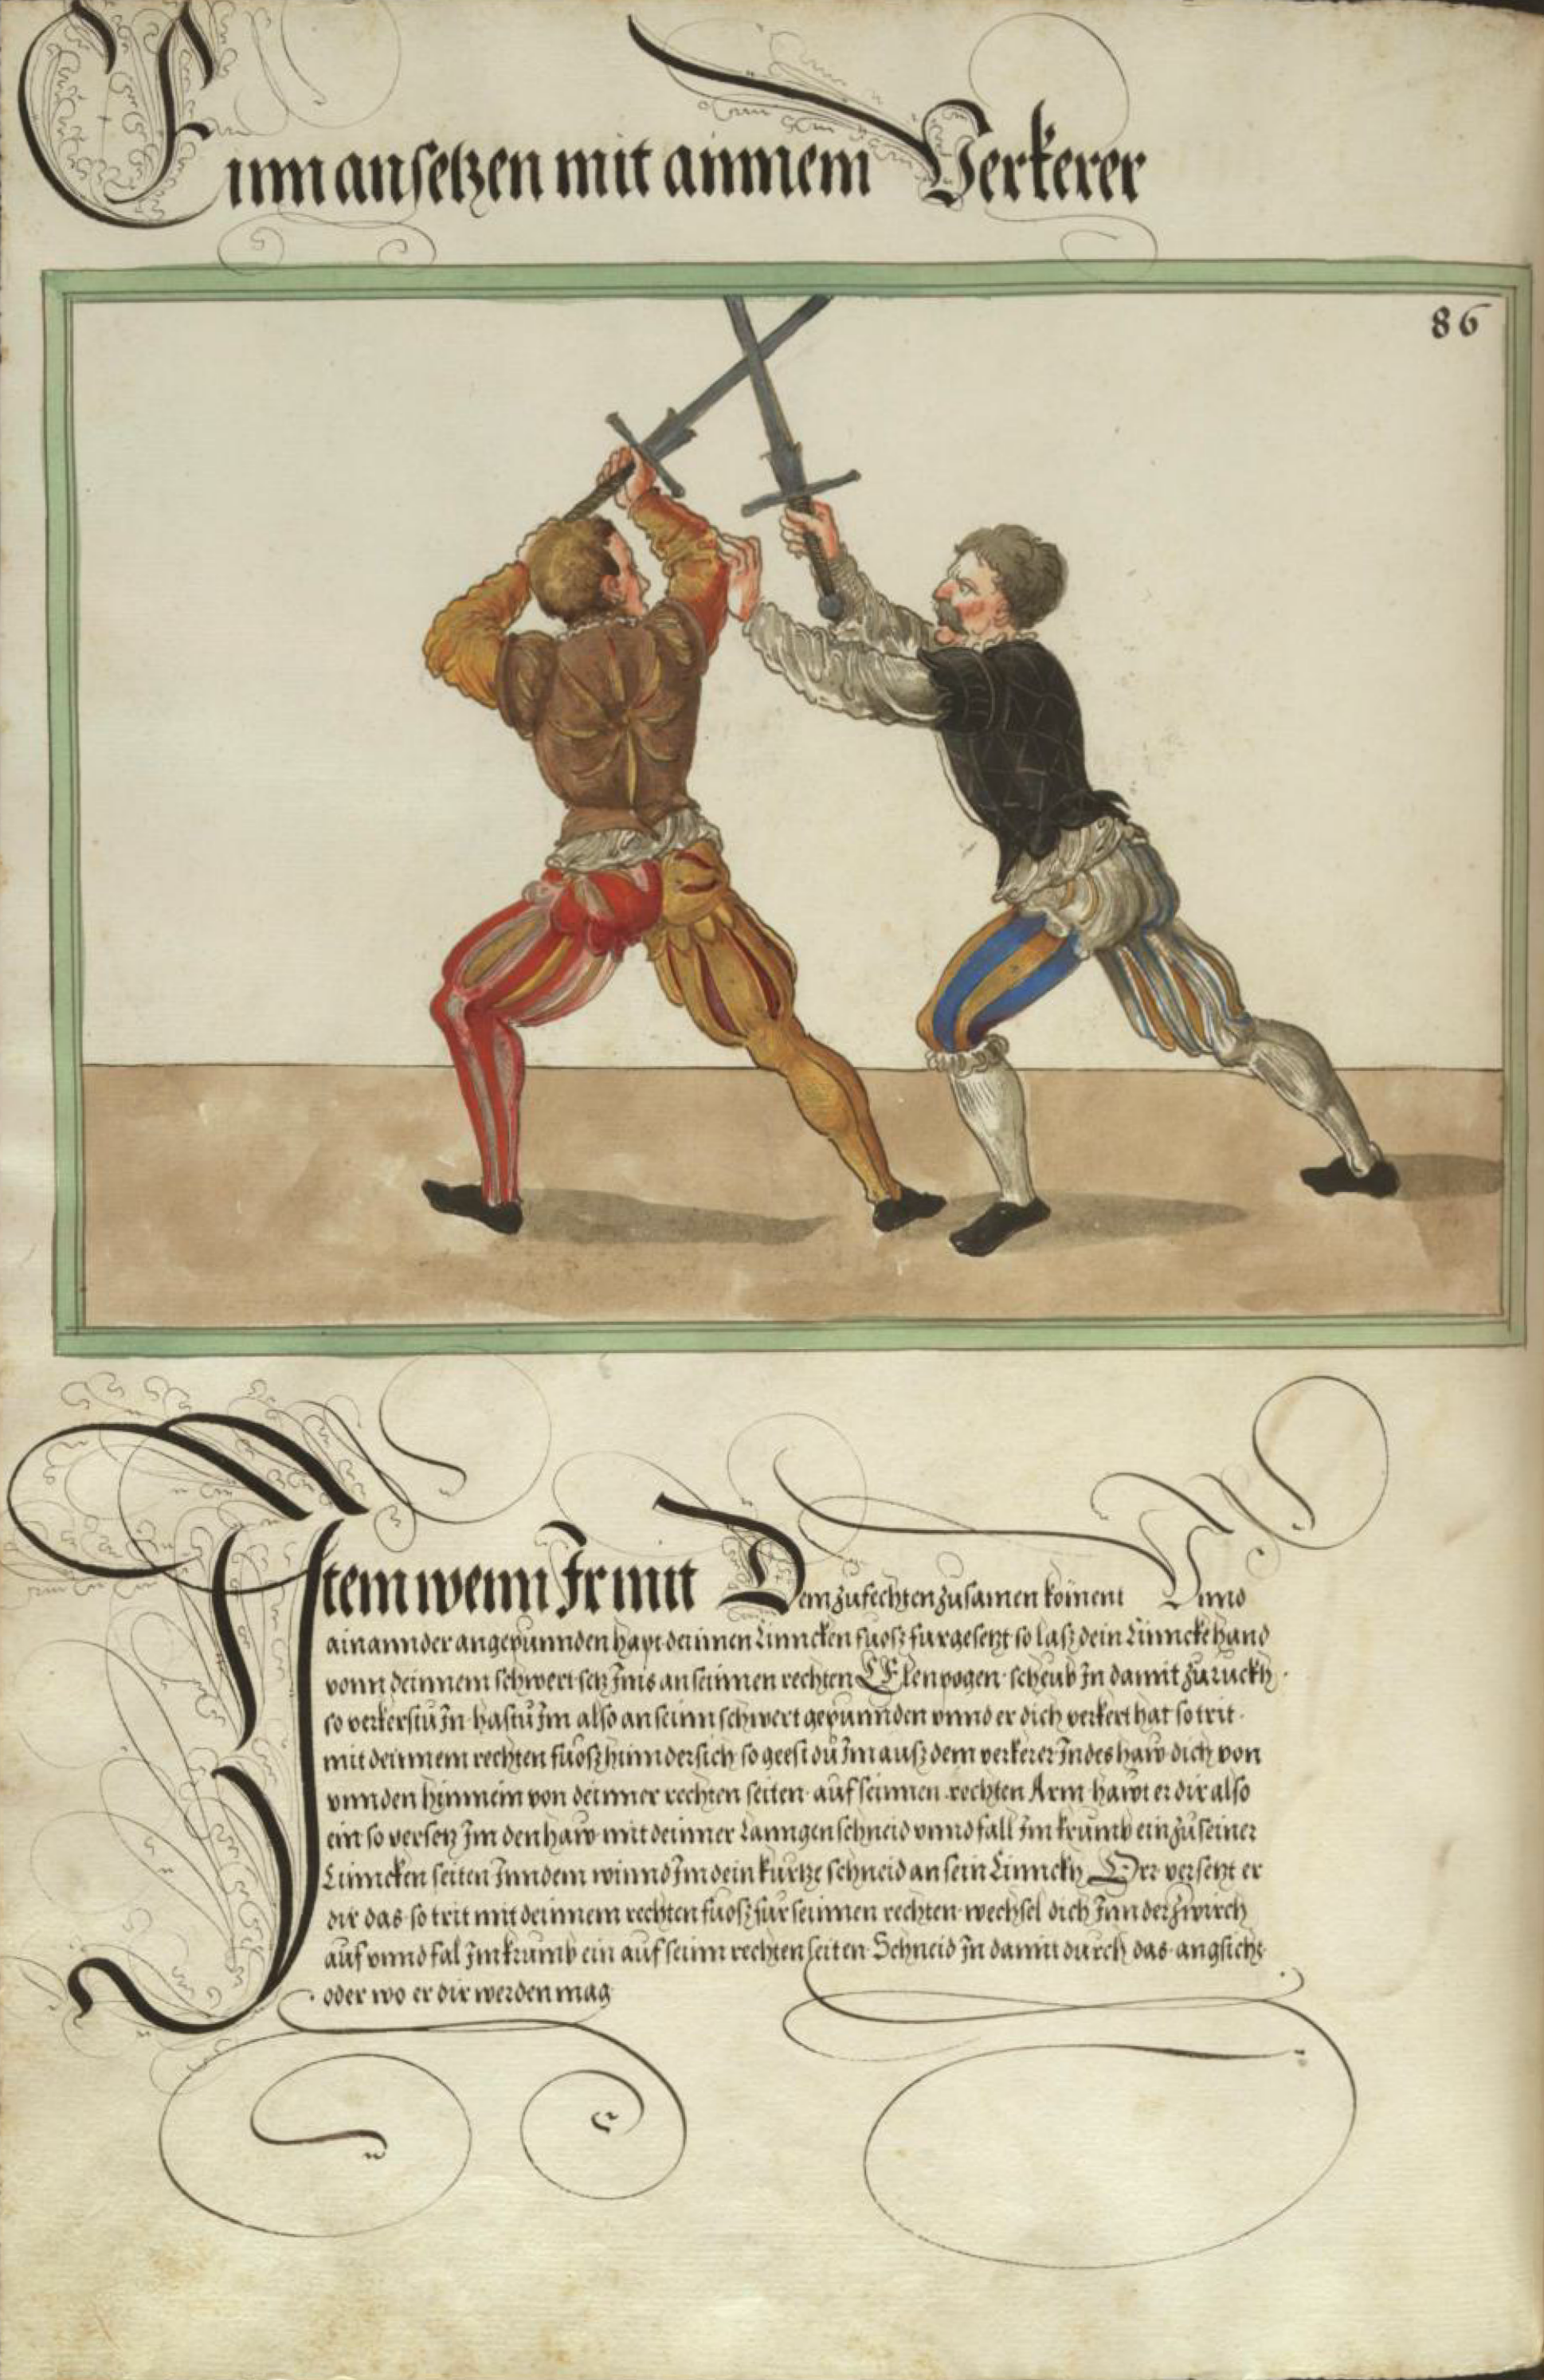 Einn ansetzen mit ainnem Verkerer
86
Item wenn Ir mit Dem zufechten zusamen koment Vnnd
ainannder angepunnden hapt deinnen Linncken fuosz furgesetzt so lasz dein Linncke hand
vonn deinnem schwert setz Ims an seinnen rechten Elenpogen scheub In damit zuruckh
so verkerstu In hastu Im also an seinn schwert gepunnden vnnd er dich verkert hat so trit
mit deinnem rechten fuosz hinndersich so geest du Im ausz dem verkerer Indes haw dich von
vnnden hinnein von deinner rechten seiten auf seinnen rechten Arm hawt er dir also
ein so versetz Im den haw mit deinner Lanngen schneid vnnd fall Im krumb ein zu seiner
Linncken seiten Inn dem winnd Im dein kurtze schneid an sein Linnckh Oer versetzt er
dir das so trit mit deinnem rechten fuosz fur seinnen rechten wechsel dich Inn der zwirch
auf vnnd fal Im krumb ein auf seinn rechten seiten Schneid In damit durch das angsicht
oder wo er dir werden mag